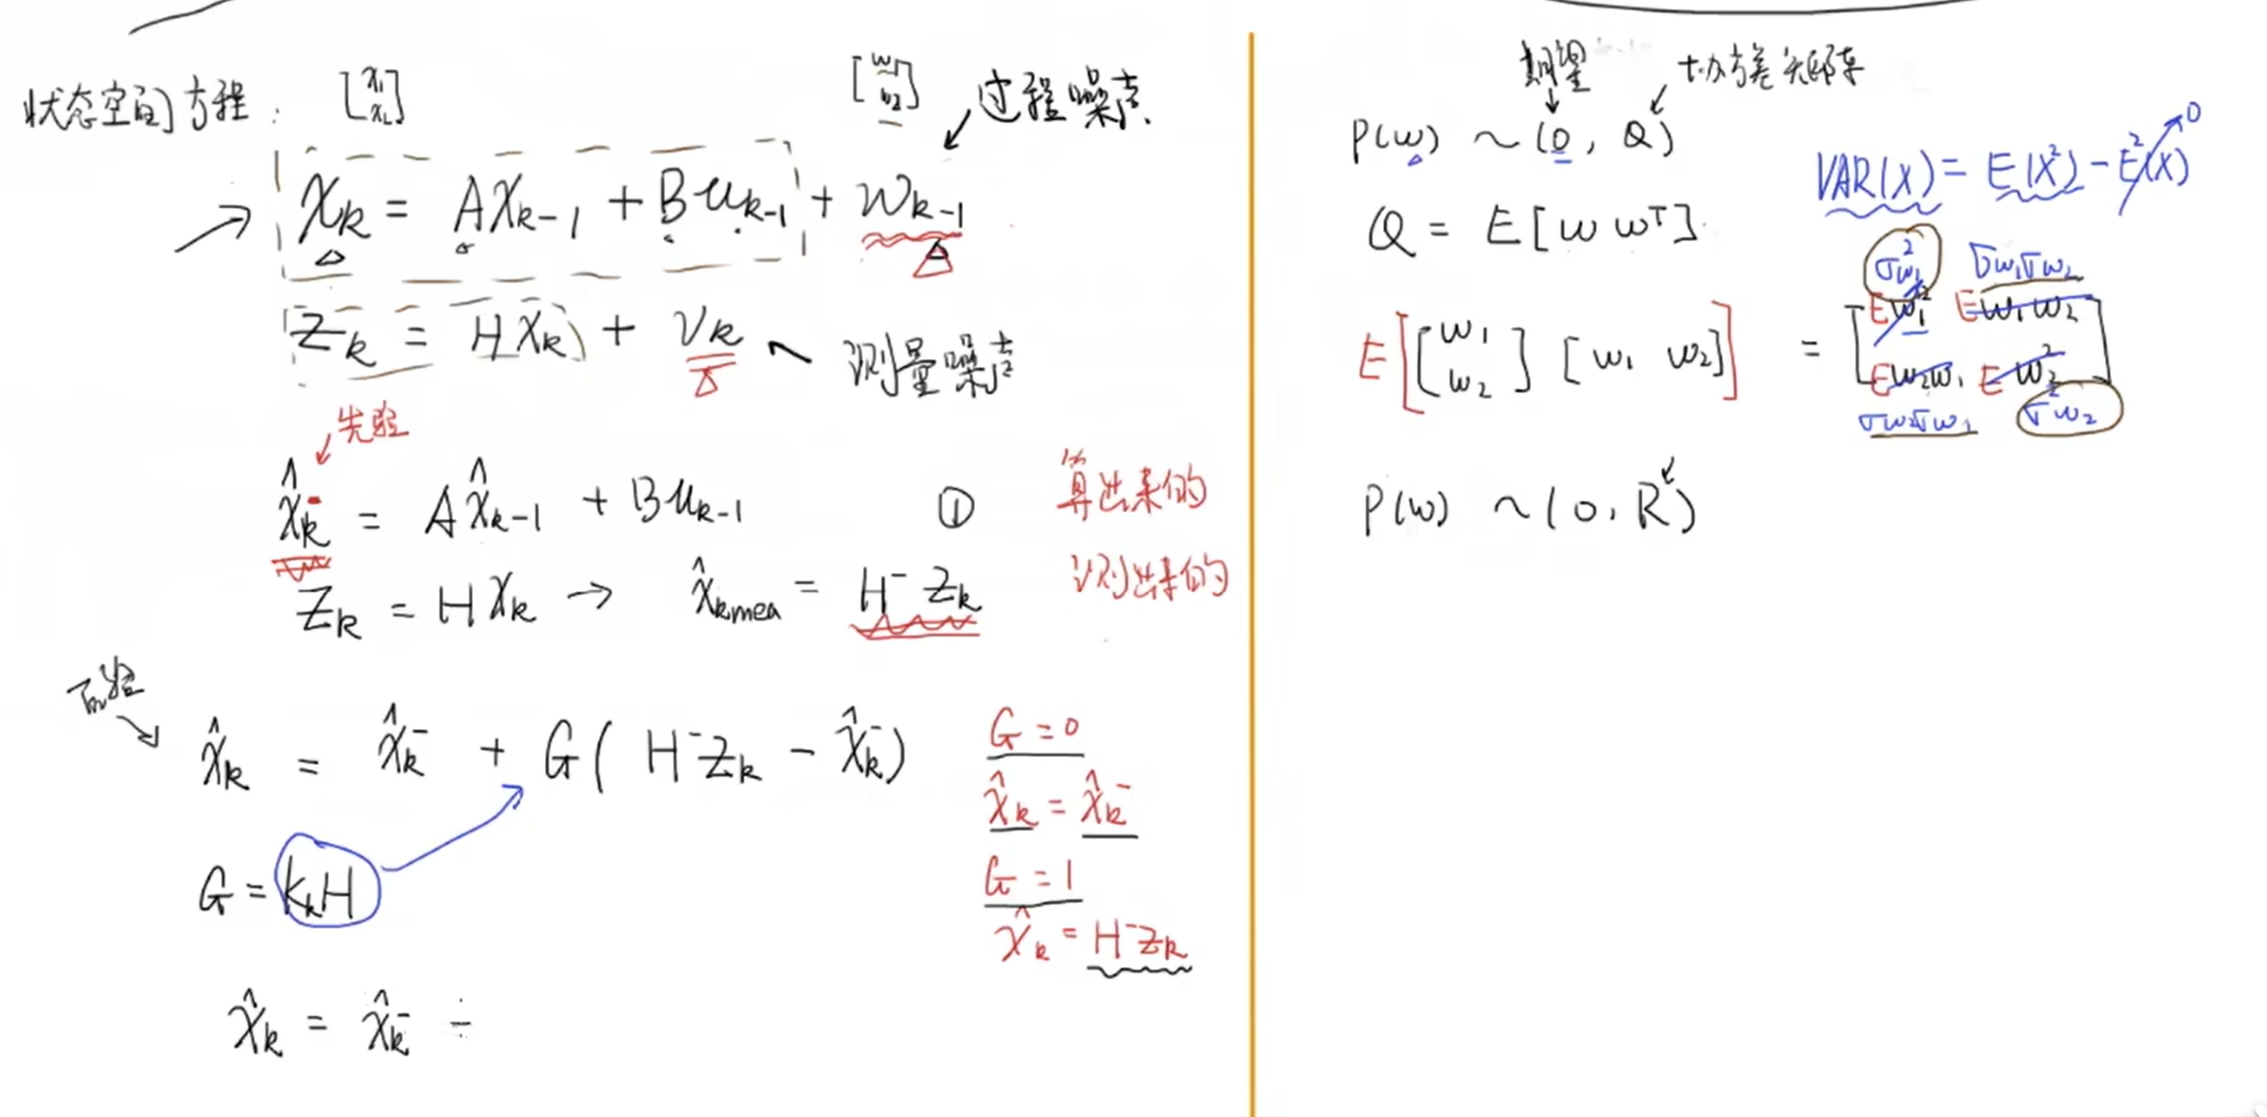 状态空间方程: [x₁ x₂] [w₁ w₂] 过程噪声.
X_k = AX_{k-1} + Bu_{k-1} + w_{k-1}
Z_k = HX_k + V_k 测量噪声
先验
x̂_k⁻ = Ax̂_{k-1} + Bu_{k-1} ① 算出来的
Z_k = HX_k → x̂_{kmea} = H⁻Z_k 测出来的
后验
x̂_k = x̂_k⁻ + G(H⁻Z_k - x̂_k⁻)
G = 0
x̂_k = x̂_k⁻
G = K_kH
G = 1
x̂_k = H⁻Z_k
x̂_k = x̂_k⁻
期望 协方差矩阵
P(w) ~ (0, Q)
VAR(X) = E(X²) - E²(X) 0
Q = E[w wᵀ].
E[[w₁ w₂] [w₁ w₂]] = [Ew₁² Ew₁w₂ Ew₂w₁ Ew₂²]
σ²w₁ σw₁σw₂
σw₂σw₁ σ²w₂
P(w) ~ (0, R)